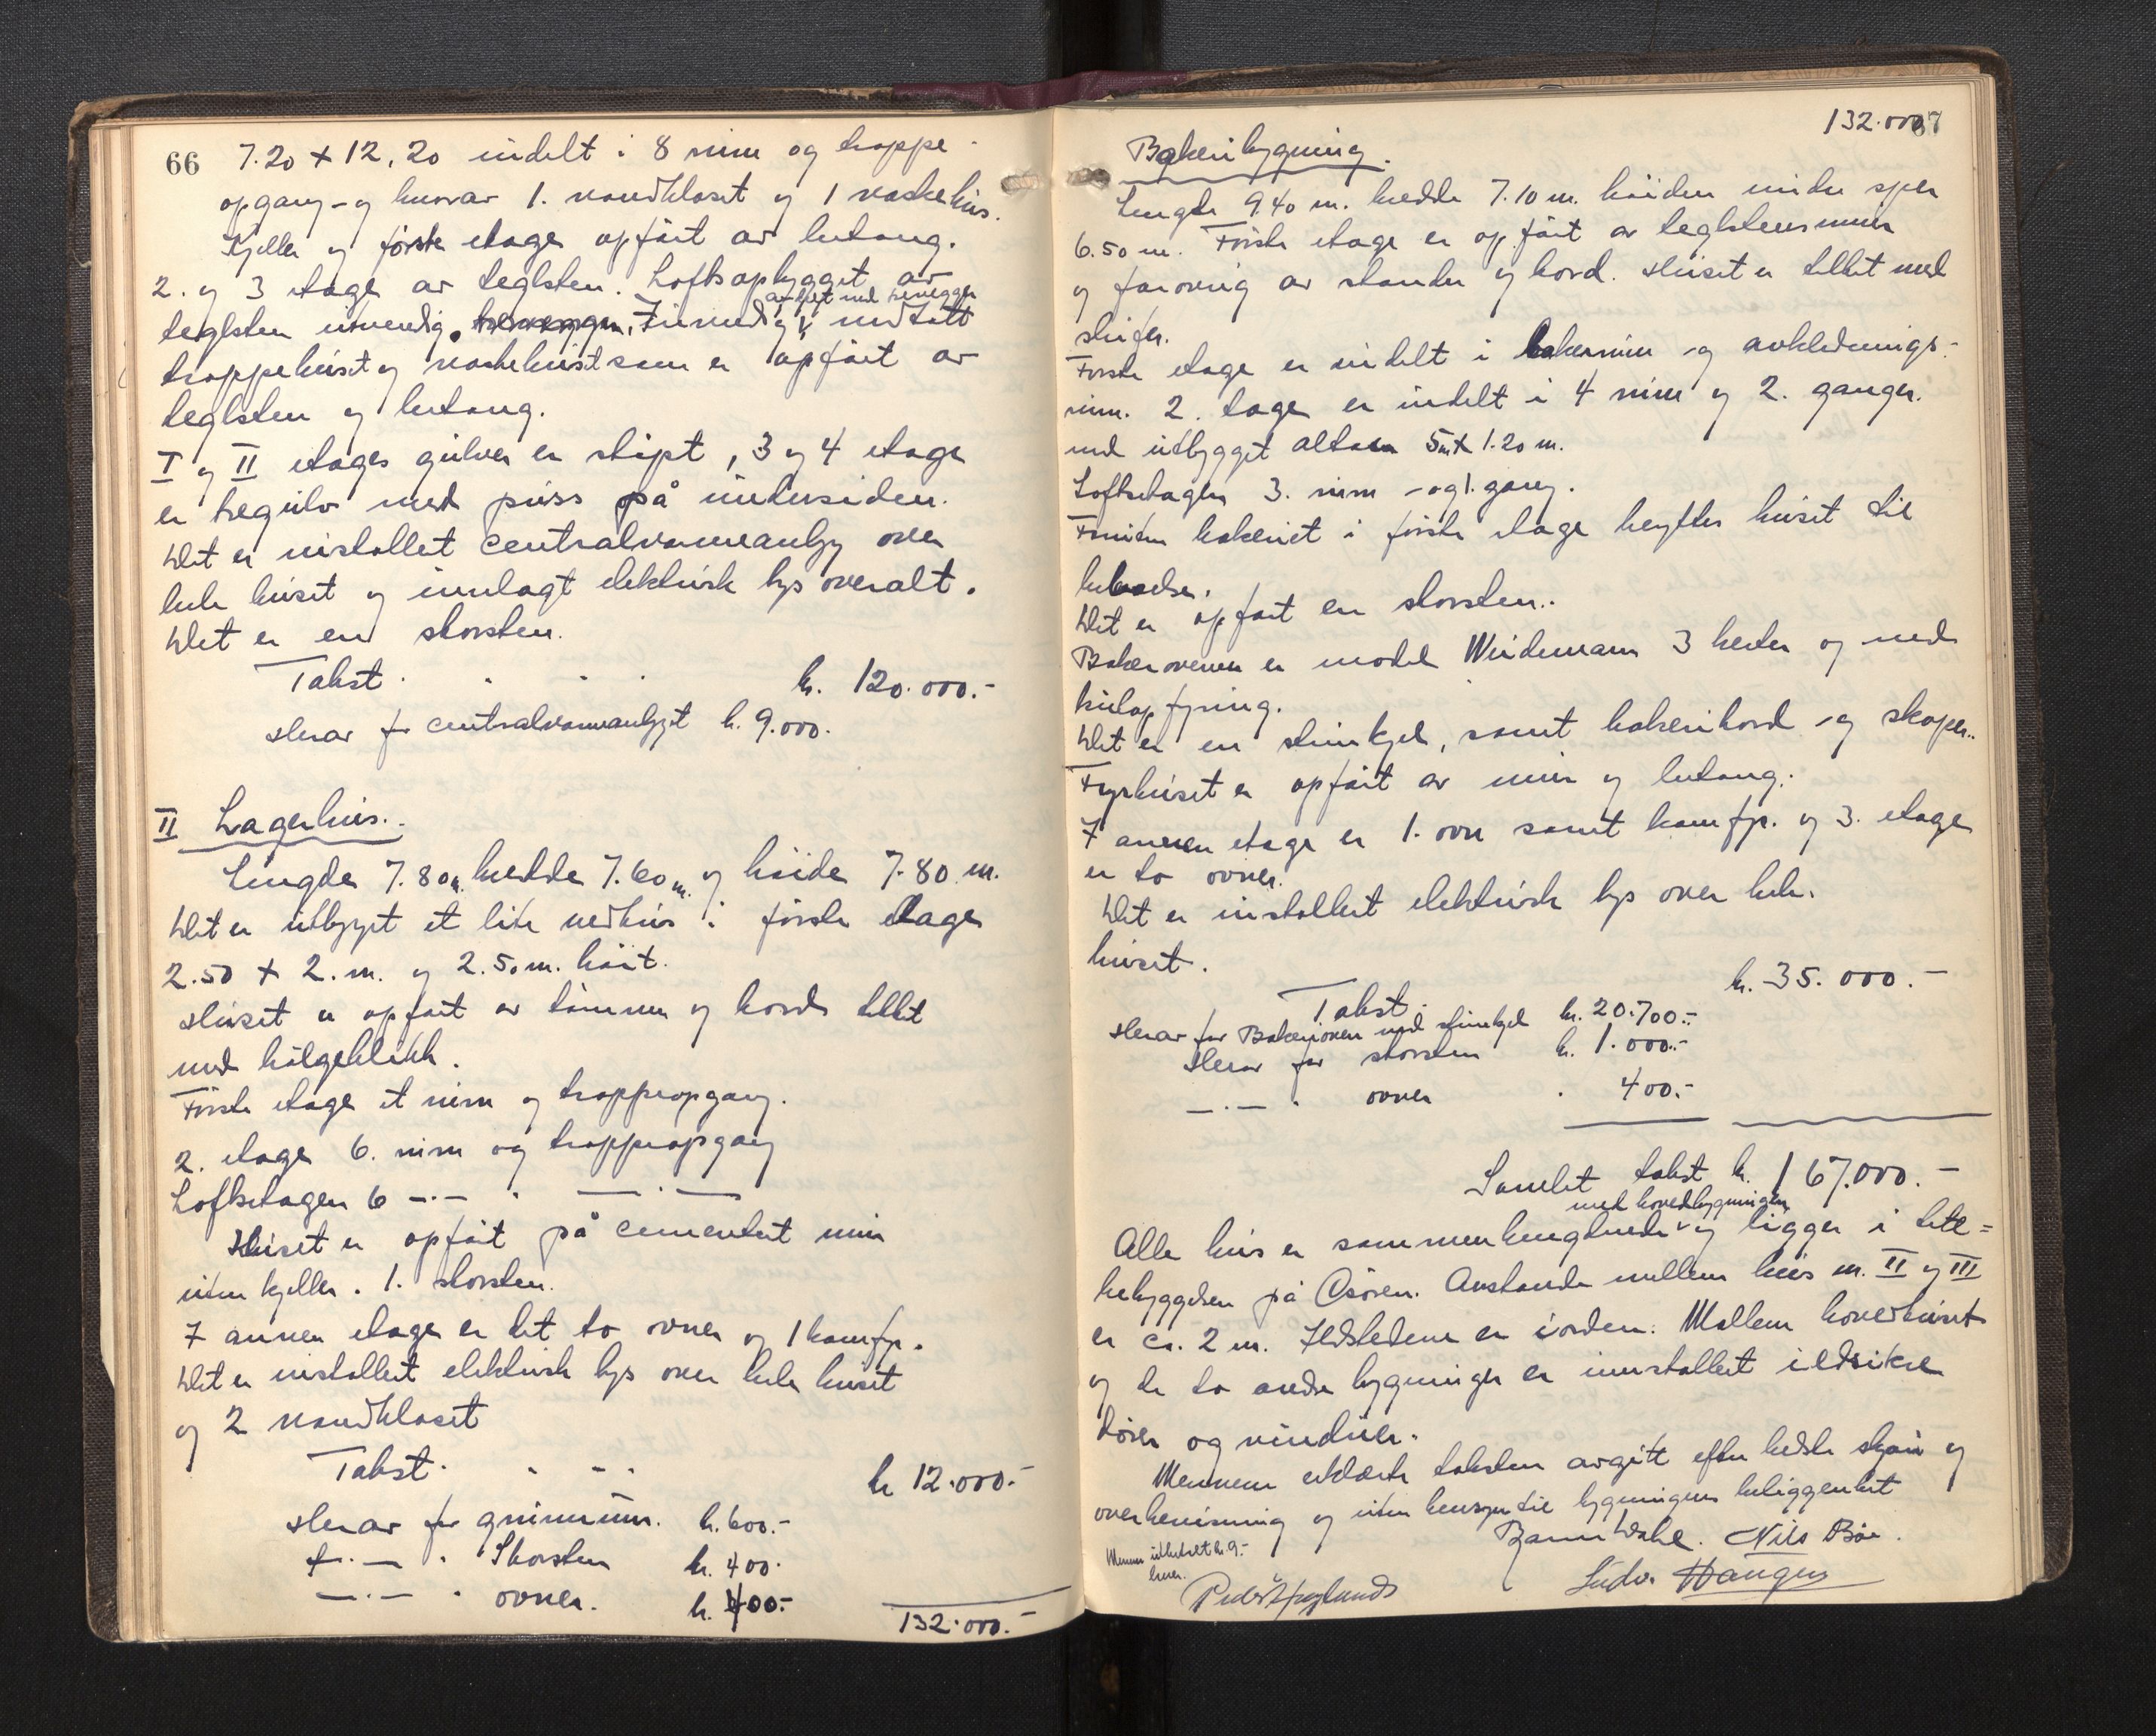 66 7.20 + 12,20 indelt i 8 rum og trappe-
opgang - og hvorav 1. vandkloset og 1 vaskehus.
Kjeller og første etage opført av betong.
2. og 3 etage av teglsten. Loftsopbygget av
avløst med trevegger
teglsten utvendig. trevegger, Indvendig undtatt
trappehuset og vaskehuset som er opført av
teglsten og betong.
I og II etages gulver er støpt, 3 og 4 etage
er tregulv med puss på undersiden.
Det er installet centralvarmeanlæg over
hele huset og innlagt elektrisk lys overalt.
Det er en skorsten.
Takst. kr. 120.000.-
Herav for centralvarmeanlægget kr. 9.000.
II Lagerhus.
Lengde 7.80 m. bredde 7.60 m. og høide 7.80 m.
Det er utbygget et lite vedhus i første etage
2.50 + 2. m. og 2.50 m. høit.
Huset er opført av tømmer og bord tekket
med bølgeblikk.
Første etage et rum og trappeopgang.
2. etage 6. rum og trappeopgang
Loftsetagen 6 -.- . -.-
Huset er opført på cementert mur
uten kjeller. 1. skorsten.
I annen etage er det to ovner og 1 komfyr.
Det er installert elektrisk lys over hele huset
og 2 vandkloset
Takst. kr 12.000.-
Herav for grunnmur. kr. 600.-
-.- . Skorsten kr. 400.
-.- . ovner. kr. 400.-
132.000.-
132.000 67
Bakeribygning.
Lengde 9.40 m. bredde 7.10 m. høiden under sper
6.50 m. Første etage er opført av teglstensmur
og forøvrig av stander og bord. Huset er tekket med
skifer.
Første etage er indelt i bakerrum og avklednings-
rum. 2. etage er indelt i 4 rum og 2. ganger.
med utbygget altan 5 m + 1.20 m.
Loftsetagen 3. rum - og 1. gang.
Foruten bakeriet i første etage benyttes huset til
beboelse.
Det er opført en skorsten.
Bakerovnen er model Weidemann 3 herder og med
kulopfyring.
Det er en dampkjel, samt bakeribord og skaper.
Fyrhuset er opført av mur og betong.
I annen etage er 1. ovn samt komfyr. og 3. etage
er to ovner.
Det er installert elektrisk lys over hele.
huset.
Takst. kr. 35.000.-
Herav for Bakeriovnen med dampkjel kr. 20.700.-
Herav for skorsten kr. 1.000.-
-.- . ovner . 400.-
Samlet takst kr. 167.000.-
med hovedbygningen
Alle hus er sammenhengende og ligger i tett-
bebyggelsen på Osøren. Avstande mellem hus nr. II og III
er ca. 2 m. Ildstedene er i orden. Mellem hovedhuset
og de to andre bygninger er innstallert ildsikre
dører og vinduer.
Mennene erklærte taksten avgitt efter bedste skjøn og
overbevisning og uten hensyn til bygningens beliggenhet
Menn utbetalt kr. 9.-
hver.
Bjarne Dahl. Nils Bøe.
Peder Høglund Ludv. Haugen